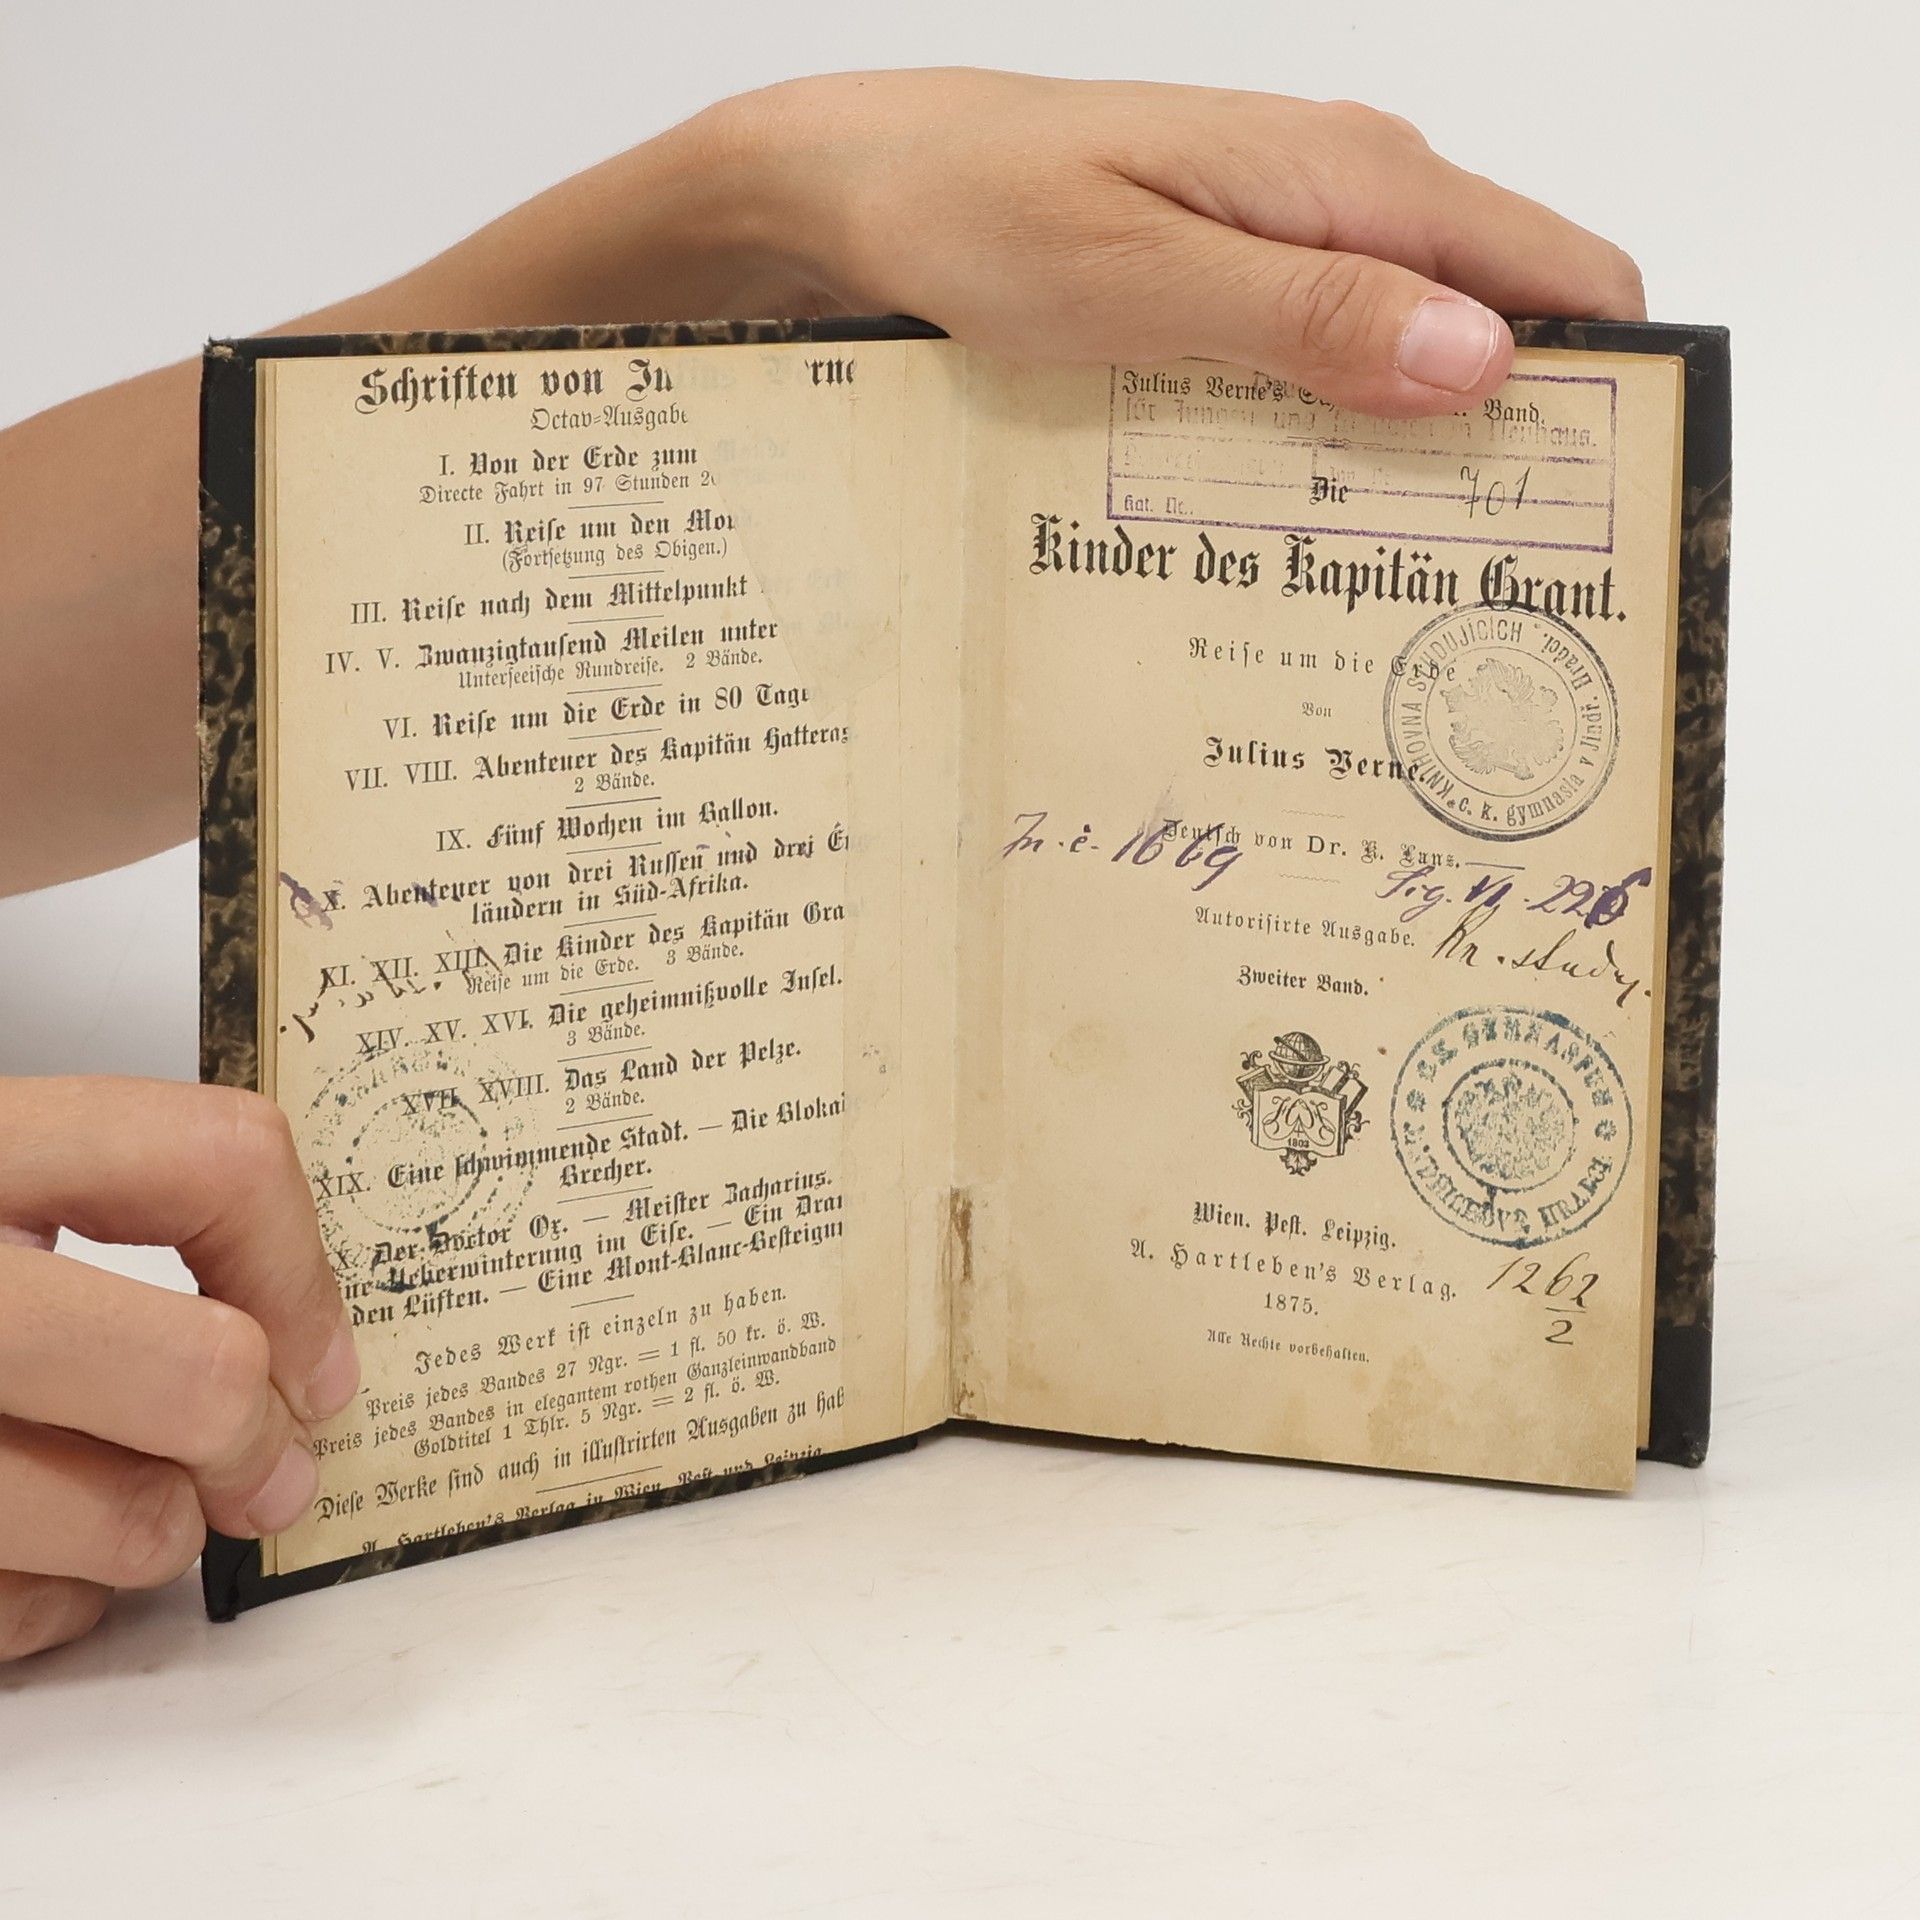 Schriften von
Octav=Ausgabe
I. Von der Erde zum
Directe Fahrt in 97 Stunden
II. Reise um den
(Fortsetzung des Obigen.)
III. Reise nach dem Mittelpunkt
IV. V. Zwanzigtausend Meilen unter
Unterseeische Rundreise. 2 Bände.
VI. Reise um die Erde in 80 Tage
VII. VIII. Abenteuer des Kapitän Hatteras
2 Bände.
IX. Fünf Wochen im Ballon.
X. Abenteuer von drei Russen und drei
ländern in Süd-Afrika.
XI. XII. XIII. Die Kinder des Kapitän
Reise um die Erde. 3 Bände.
XIV. XV. XVI. Die geheimnißvolle Insel.
3 Bände.
XVII. XVIII. Das Land der Pelze.
2 Bände.
XIX. Eine schwimmende Stadt. — Die
Brecher.
Der Doctor Ox. — Meister Zacharius.
Ueberwinterung im Eise. — Ein
den Lüften. — Eine
Jedes Werk ist einzeln zu haben.
Preis jedes Bandes 27 Ngr. = 1 fl. 50 kr. ö. W.
Preis jedes Bandes in elegantem rothen Ganzleinwandband
Goldtitel 1 Thlr. 5 Ngr. = 2 fl. ö. W.
Diese Werke sind auch in illustrirten Ausgaben zu
A. Hartleben's Verlag in Wien, Pest und Leipzig
Julius Verne's Band.
Neuhaus.
701
Kat. Nr.
Die
Kinder des Kapitän Grant.
Reise um die Erde
Von
Julius Verne.
KNIHOVNA STUDUJÍCÍCH
c. k. gymnasia v Jindř. Hradci.
Deutsch von Dr. K. Lanz.
In. č. 1669
Sig. VI. 226
Autorisirte Ausgabe.
Kn. study.
Zweiter Band.
Wien. Pest. Leipzig.
A. Hartleben's Verlag.
1262
2
1875.
Alle Rechte vorbehalten.